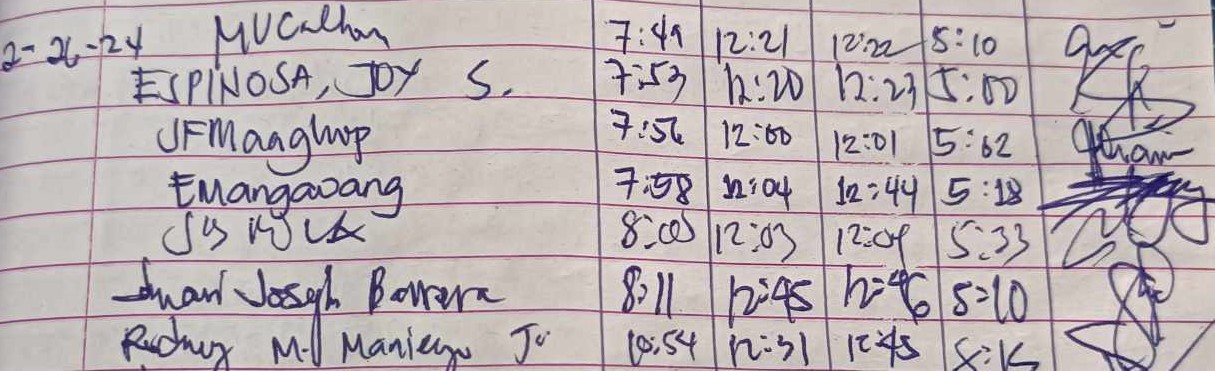 2-26-24 MVCalhan 7:49 12:21 12:22 5:10
ESPINOSA, JOY S. 7:53 12:20 12:23 5:00
JFMaaghop 7:56 12:00 12:01 5:02
EMangawang 7:58 12:04 12:44 5:18
8:00 12:03 12:04 5:33
Joseph Barrera 8:11 12:45 12:46 5:10
Rodney M. Jr 10:54 12:31 12:45